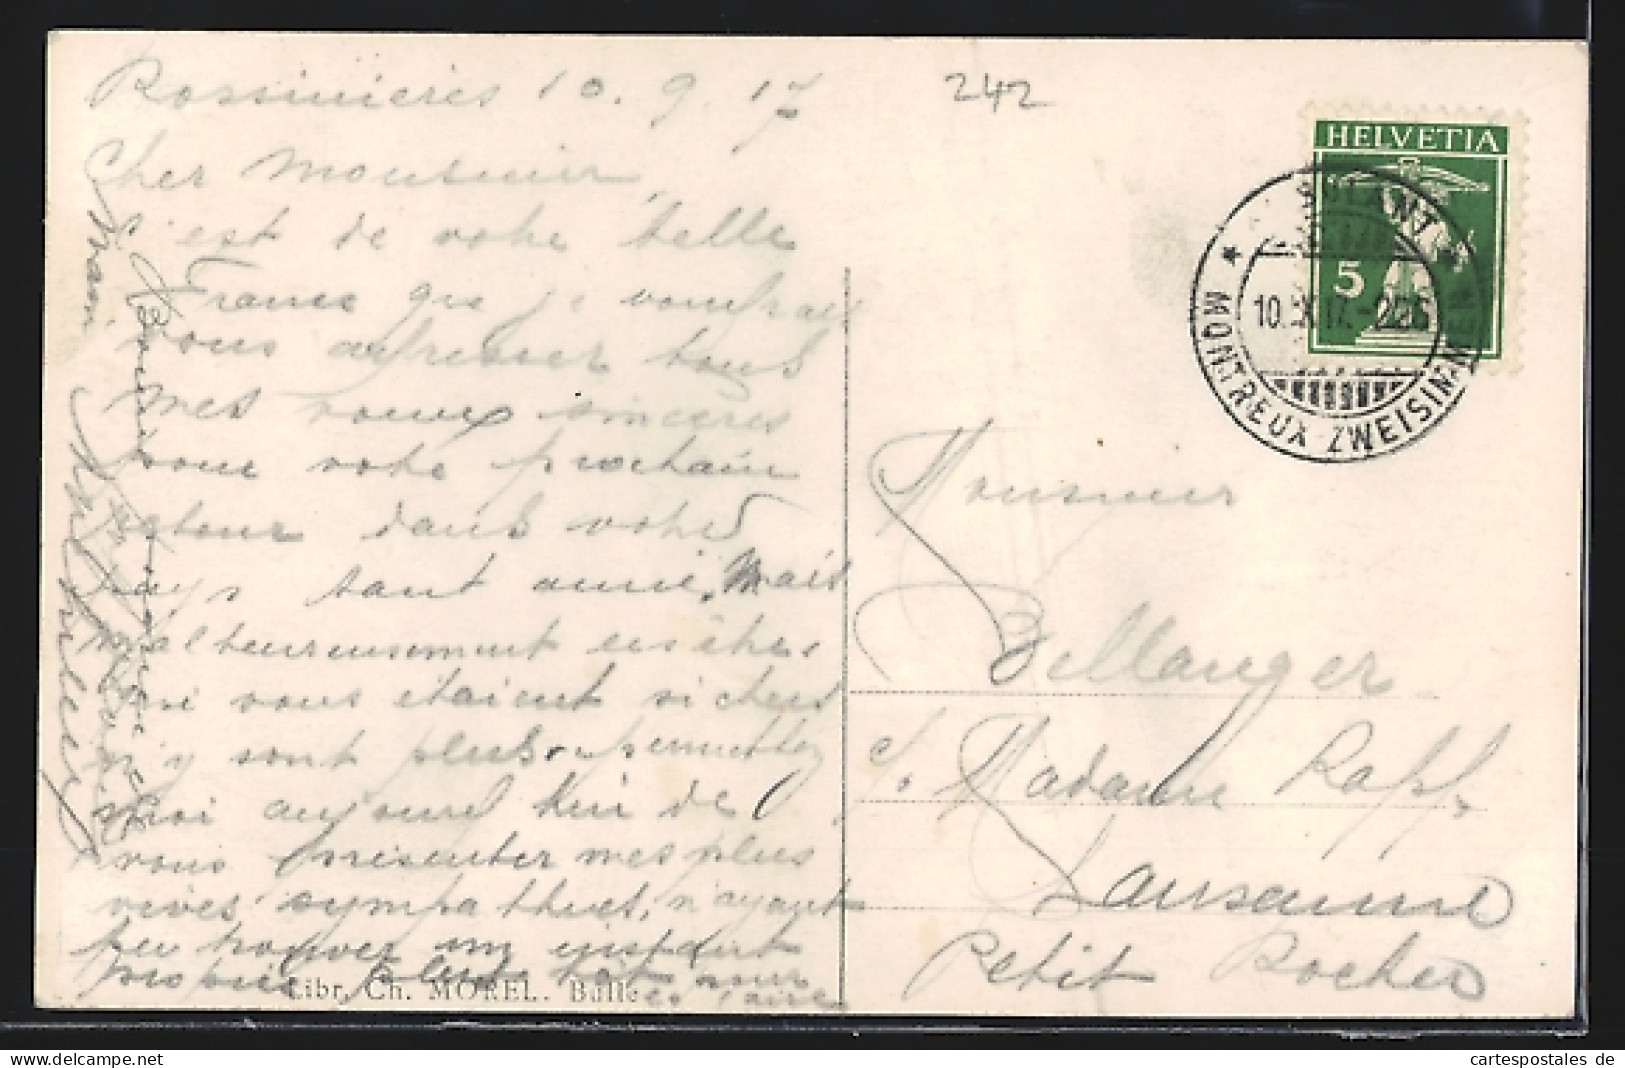 Rossinières 10.9.17
242
Cher Monsieur,
c'est de votre belle
France que je voudrais
vous adresser tous
mes voeux sincères
pour votre prochain
retour dans votre
pays tant aimé. Mais
malheureusement les êtres
qui vous étaient si chers
n'y sont plus. permettez
moi aujourd'hui de
vous présenter mes plus
vives sympathies, n'ayant
pu trouver un instant
propice plus tôt pour
le faire
HELVETIA
5
AMBULANT
10.IX.17.-226
MONTREUX-ZWEISIMMEN
Monsieur
Bellanger
c/. Madame Rapp.
Lausanne
Petit Rocher
Libr. Ch. MOREL. Bulle
cartespostales.de